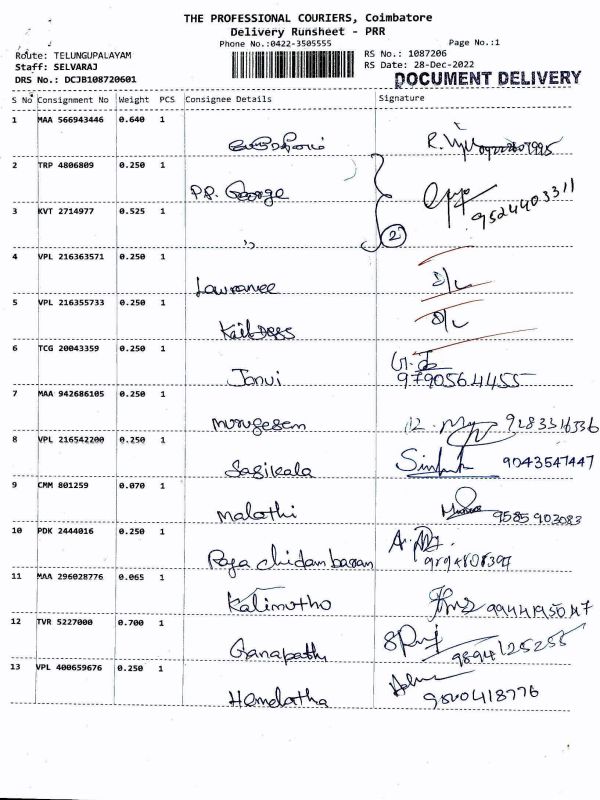 THE PROFESSIONAL COURIERS, Coimbatore
Delivery Runsheet - PRR
Phone No.:0422-3505555 Page No.:1
Route: TELUNGUPALAYAM RS No.: 1087206
Staff: SELVARAJ RS Date: 28-Dec-2022
DRS No.: DCJB108720601 DOCUMENT DELIVERY
S No Consignment No Weight PCS Consignee Details Signature
1 MAA 566943446 0.640 1
2 TRP 4806809 0.250 1
P.P. George
9524403311
3 KVT 2714977 0.525 1
" 2
4 VPL 216363571 0.250 1
Lawrance D/L
5 VPL 216355733 0.250 1
D/L
6 TCG 20043359 0.250 1
Janvi 9790564455
7 MAA 942686105 0.250 1
Murugesan 9283316336
8 VPL 216542200 0.250 1
Sasikala 9043547447
9 CMM 801259 0.070 1
Malathi 9585903083
10 PDK 2444016 0.250 1
Raja Chidambaram
11 MAA 296028776 0.065 1
Kalimutho
12 TVR 5227000 0.700 1
Ganapathi 9894125255
13 VPL 400659676 0.250 1
Hemalatha